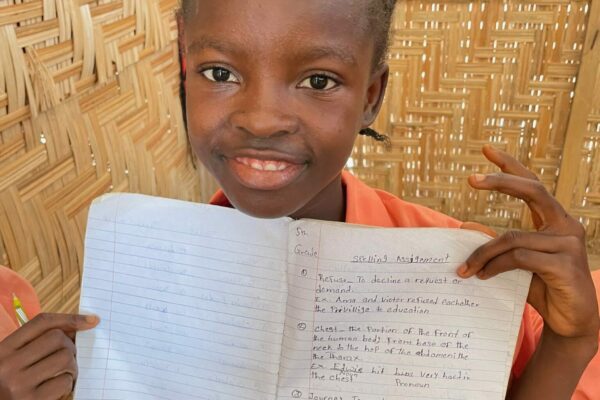 5th
Grade
Spelling Assignment
① Refuse_ To decline a request or
demand.
Ex. Anna and Victor refused Eachother
the Previllige to education.
② Chest_ the Portion of the front of
the human body from base of the
neck to the top of the abdomen; the
the thorax.
Ex hit him very hard in
the chest Pronoun
③